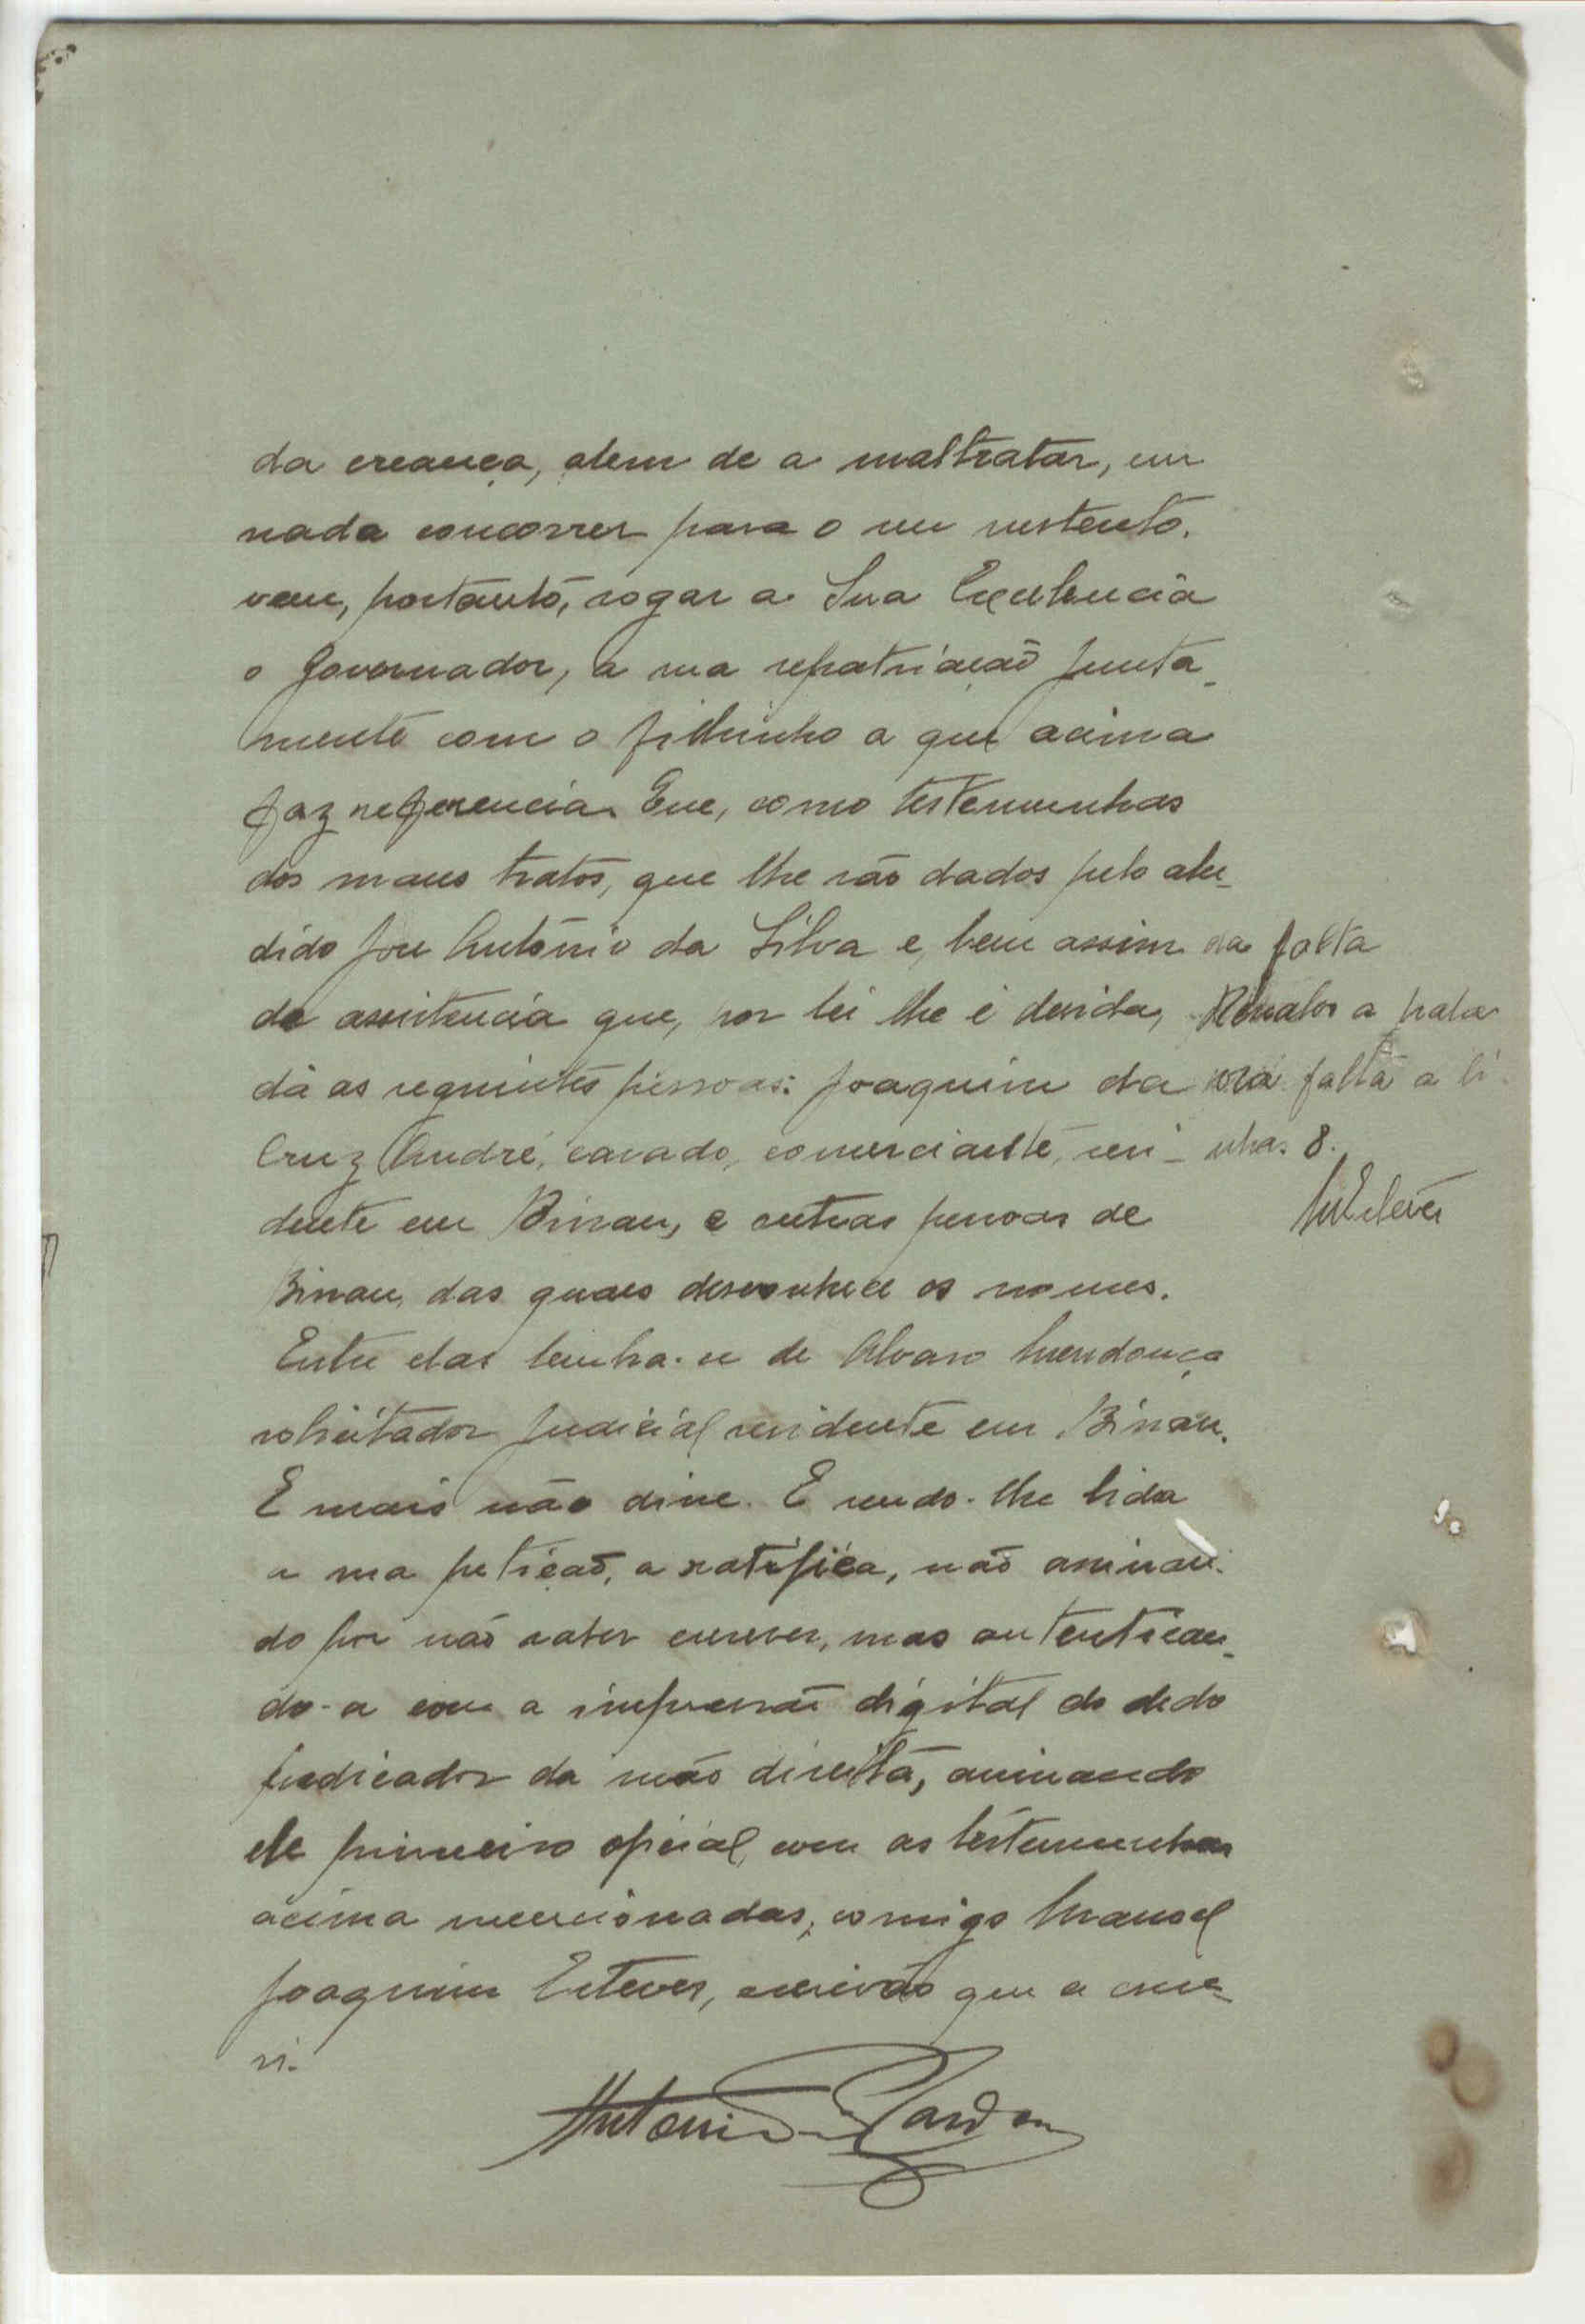 da creança, alem de a maltratar, em
nada concorrer para o seu sustento.
vem, portanto, rogar a Sua Excelencia
o Governador, a sua repatriação junta-
mente com o filhinho a que acima
faz referencia. Que, como testemunhas
dos maus tratos, que lhe são dados pelo alu-
dido José António da Silva e, bem assim da falta
de assistencia que, por lei lhe é devida,
dá as seguintes pessoas: Joaquim da
Cruz André, casado, comerciante, resi-
dente em Bissau, e outras pessoas de
Bissau, das quaes desconhece os nomes.
Entre elas lembra-se de Alvaro Mendonça
solicitador judicial residente em Bissau.
E mais não disse. E sendo-lhe lida
a sua petição, a ratifica, não assinan-
do por não saber escrever, mas autentican-
do-a com a impressão digital do dedo
indicador da mão direita, assinando
ele primeiro oficial, com as testemunhas
acima mencionadas, comigo Manoel
Joaquim Esteves, escrivão que a escre-
vi.
Ressalvo a pala
vra falta a li-
nha. 8.
MEsteves
Antonio Cardoso